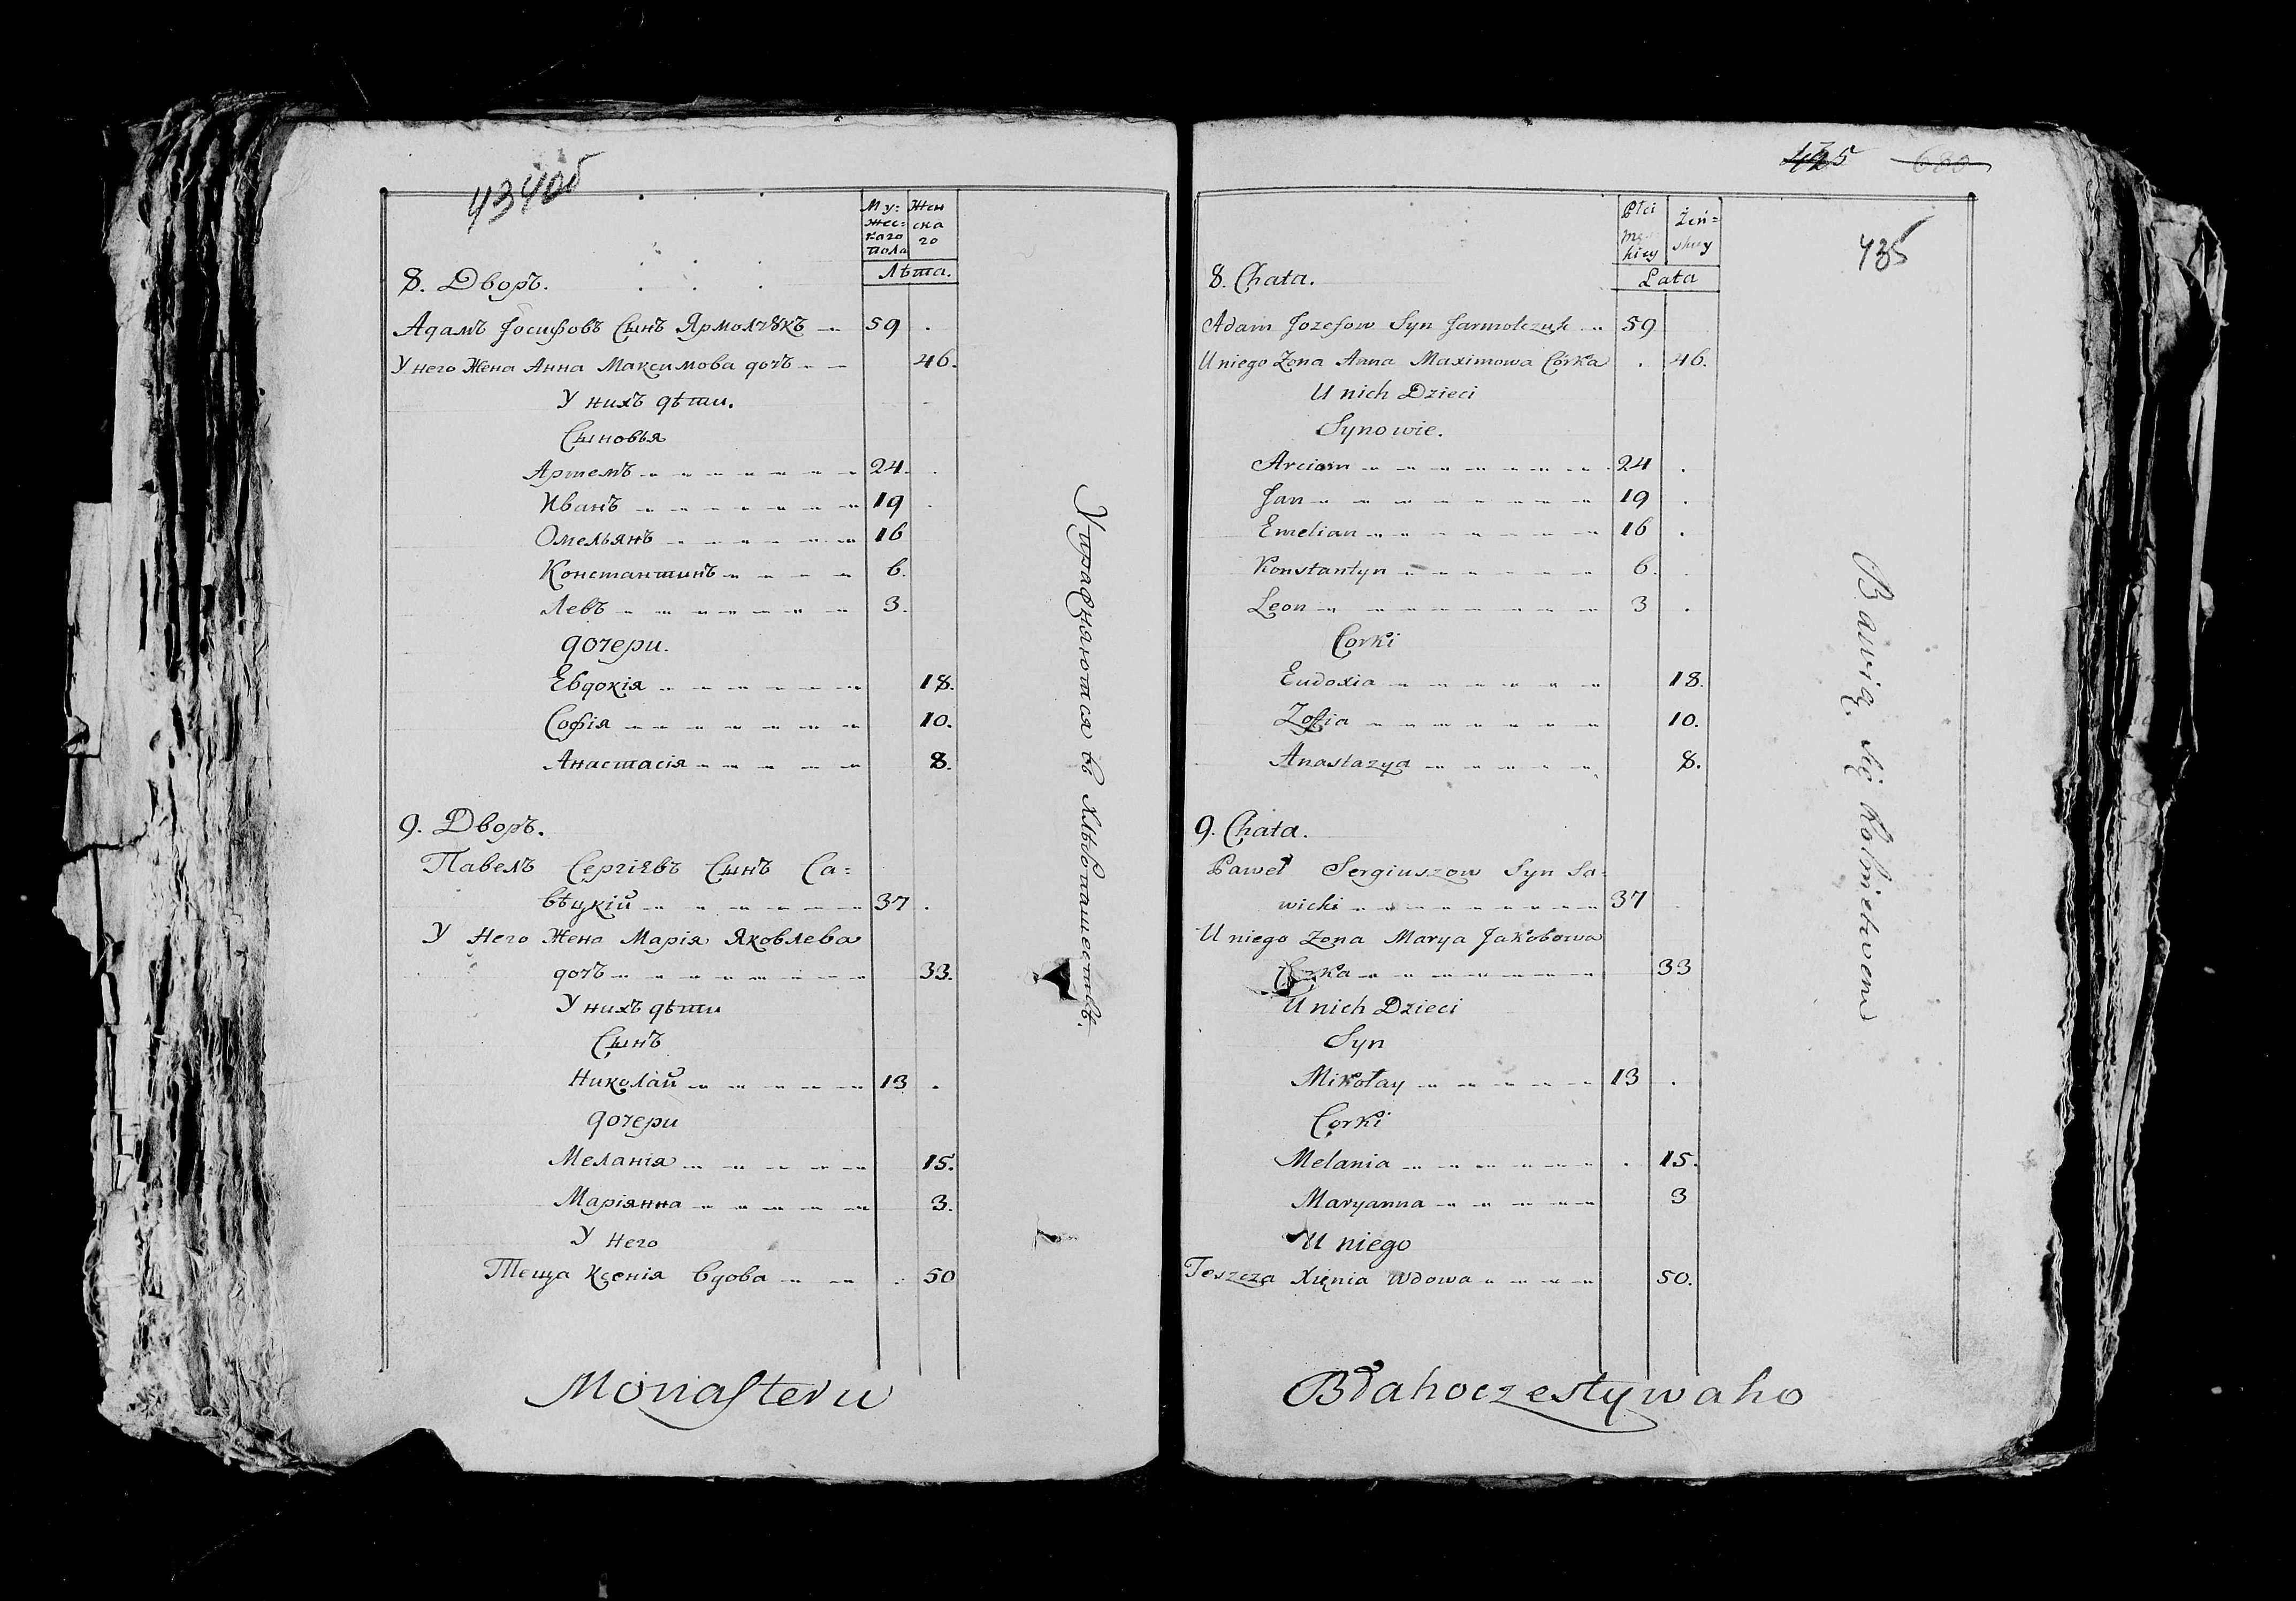 434об
Му: Жен
жес: ска
каго го
пола
Лѣта.
8. Дворъ.
Адамъ Іосифовъ Сынъ Ярмолчукъ 59
У него Жена Анна Максимова дочъ 46.
У нихъ дѣти.
Сыновья
Артемъ 24.
Иванъ 19
Омельянъ 16
Константинъ 6.
Левъ 3.
дочери.
Евдокія 18.
Софія 10.
Анастасія 8.
9. Дворъ.
Павелъ Сергіевъ Сынъ Са:
вѣцкій 37
У Него Жена Марія Яковлева
дочъ 33.
У нихъ дѣти
Сынъ
Николай 13
дочери
Меланія 15.
Маріянна 3.
У Него
Теща Ксенія вдова 50
Упражняются въ хлѣбопашествѣ.
Monasteru
435
Płci Żeń=
skiey
Lata
8. Chata.
Adam Jozefow Syn Jarmolczuk 59
U niego Zona Anna Maximowa Córka 46.
U nich Dzieci
Synowie.
Arciom 24
Jan 19
Emelian 16
Konstantyn 6.
Leon 3
Corki
Eudoxia 18.
Zofia 10.
Anastazya 8.
9. Chata.
Paweł Sergiuszow Syn Sa:
wicki 37
U niego Zona Marya Jakobowa
Corka 33
U nich Dzieci
Syn
Mikołay 13
Corki
Melania 15.
Maryanna 3
U niego
Teszcza Xienia Wdowa 50.
Bawią się Rolnictwem
Błahoczestywaho